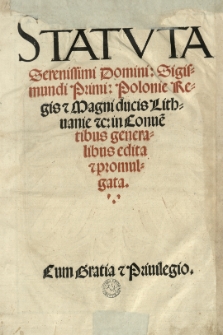 STATVTA
Serenissimi Domini: Sigis-
mundi Primi: Polonie Re-
gis ⁊ Magni ducis Lith-
vanie ⁊c: in Conuē
tibus genera-
libus edita
⁊ promul-
gata.
Cum Gratia ⁊ Priuilegio.